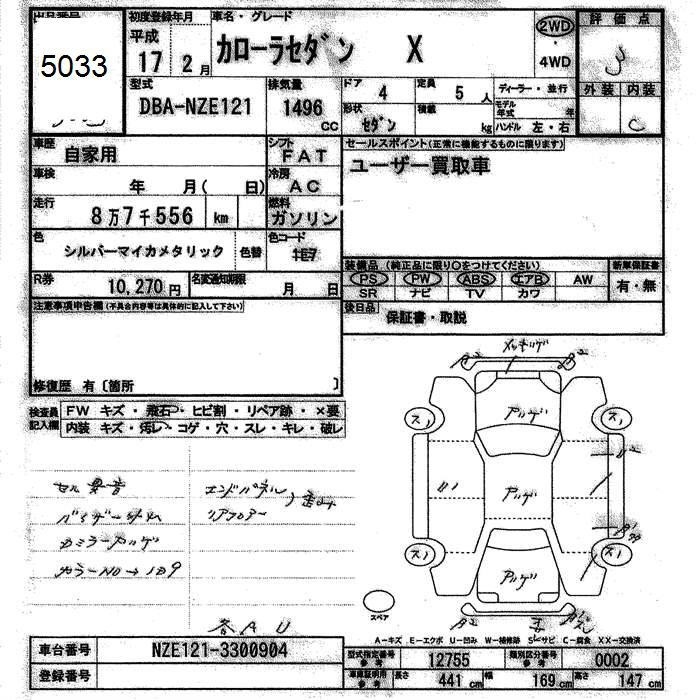 5033
初度登録年月
平成
17 2月
車名・グレード
カローラセダン X
2WD
4WD
評価点
3
外装 内装
C
型式
DBA-NZE121
排気量
1496
cc
ドア
4
定員
5 人
形状
セダン
積載
kg
ディーラー・並行
モデル年式 年
ハンドル 左・右
車歴
自家用
シフト
FAT
車検
年 月( 日)
冷房
AC
走行
8万7千556 km
燃料
ガソリン
色
シルバーマイカメタリック
色替
色コード
1E7
R券
10,270円
名変通知期限
月 日
セールスポイント(正常に機能するものに限ります)
ユーザー買取車
装備品 (純正品に限り○をつけてください)
PS PW ABS エアB AW
SR ナビ TV カワ
新車保証書
有・無
後日品
保証書・取説
注意事項申告欄(不具合内容等は具体的に記入して下さい)
修復歴 有〔箇所 〕
検査員記入欄
FW キズ・飛石・ヒビ割・リペア跡・×要
内装 キズ・汚レ・コゲ・穴・スレ・キレ・破レ
セル異音
バイザー
カラーNo→1D9
エンドパネル
リアフロアー
歪み
各AU
スペア
A-キズ E-エクボ U-凹み W-補修跡 S-サビ C-腐食 XX-交換済
車台番号
NZE121-3300904
登録番号
型式指定番号
参考
12755
類別区分番号
参考
0002
車庫証明用
参考
長さ
441 cm
幅
169 cm
高さ
147 cm